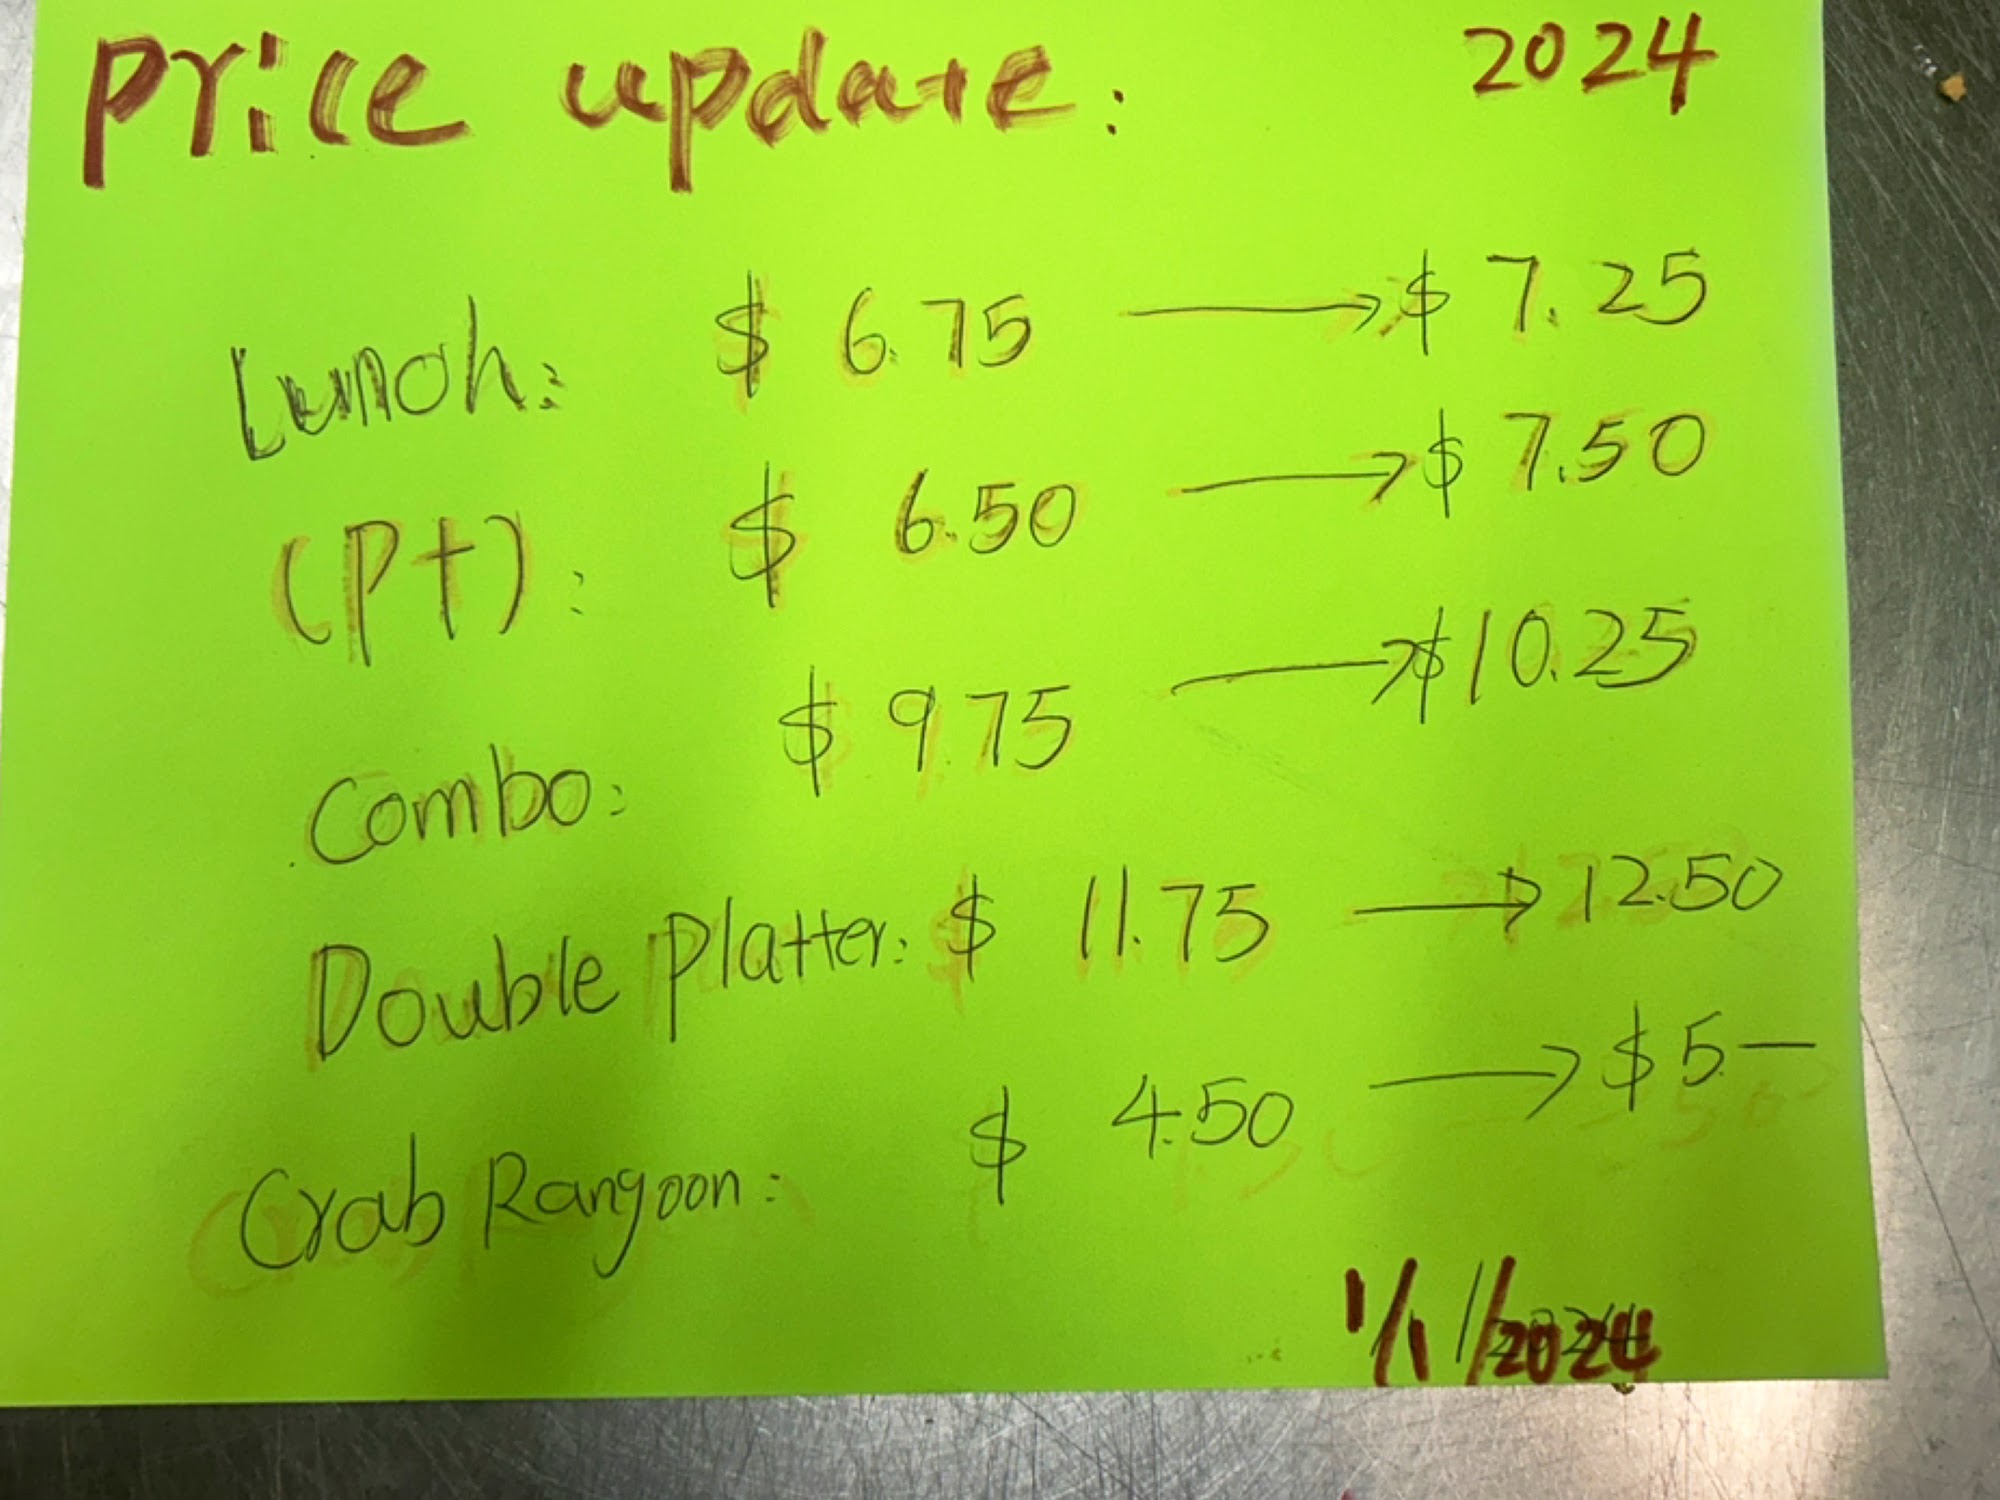 Price update: 2024
Lunch: $ 6.75 → $ 7.25
(Pt): $ 6.50 → $ 7.50
Combo: $ 9.75 → $ 10.25
Double Platter: $ 11.75 → 12.50
Crab Rangoon: $ 4.50 → $ 5.—
1/1/2024